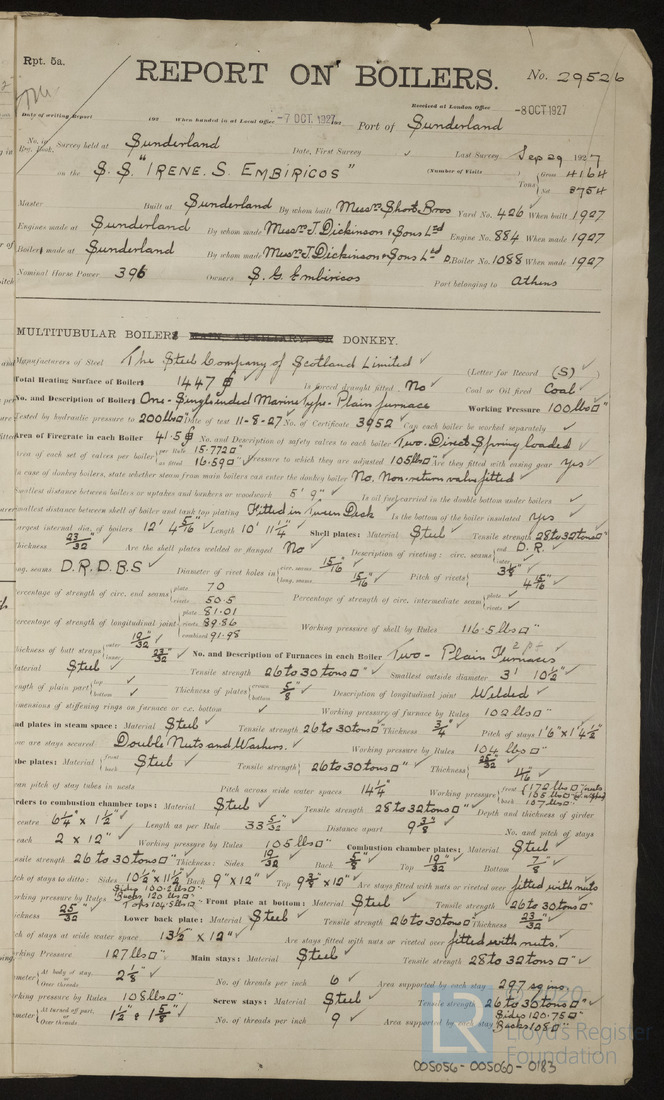 Rpt. 5a.
REPORT ON BOILERS.
No. 29526
Received at London Office -8 OCT 1927
Date of writing Report 192 When handed in at Local Office -7 OCT. 1927 Port of Sunderland
No. in Reg. Book. Survey held at Sunderland Date, First Survey Last Survey Sep 29 1927
on the S.S. "IRENE. S. EMBIRICOS" (Number of Visits Tons Gross 4164
Net 2754
Master Built at Sunderland By whom built Messrs Short Bros Yard No. 426 When built 1927
Engines made at Sunderland By whom made Messrs J. Dickinson & Sons Ltd Engine No. 884 When made 1927
Boilers made at Sunderland By whom made Messrs J. Dickinson & Sons Ltd D. Boiler No. 1088 When made 1927
Nominal Horse Power 396 Owners S. G. Embiricos Port belonging to Athens
MULTITUBULAR BOILERS MAIN, AUXILIARY, OR DONKEY.
Manufacturers of Steel The Steel Company of Scotland Limited (Letter for Record (S)
Total Heating Surface of Boilers 1447 Is forced draught fitted No Coal or Oil fired Coal
No. and Description of Boilers One - Single ended Marine type - Plain furnace Working Pressure 100 lbs□"
Tested by hydraulic pressure to 200 lbs□" Date of test 11-8-27 No. of Certificate 3952 Can each boiler be worked separately
Area of Firegrate in each Boiler 41.5 No. and Description of safety valves to each boiler Two. Direct Spring loaded
Area of each set of valves per boiler per Rule 15.772□" as fitted 16.59□" Pressure to which they are adjusted 105 lbs□" Are they fitted with easing gear yes
In case of donkey boilers, state whether steam from main boilers can enter the donkey boiler No. Non-return valve fitted
Smallest distance between boilers or uptakes and bunkers or woodwork 5' 9" Is oil fuel carried in the double bottom under boilers
Smallest distance between shell of boiler and tank top plating Fitted in Tween Deck Is the bottom of the boiler insulated yes
Largest internal dia. of boilers 12' 4 5/16" Length 10' 11 1/4" Shell plates: Material Steel Tensile strength 28 to 32 tons□"
Thickness 23/32" Are the shell plates welded or flanged No Description of riveting: circ. seams end D. R. inter
long. seams D.R.D.B.S Diameter of rivet holes in circ. seams 15/16" long. seams 15/16" Pitch of rivets 3 1/8" 4 15/16"
Percentage of strength of circ. end seams plate 70 rivets 50.5 Percentage of strength of circ. intermediate seam plate rivets
Percentage of strength of longitudinal joint plate 81.01 rivets 89.86 combined 91.98 Working pressure of shell by Rules 116.5 lbs□"
Thickness of butt straps outer 19/32" inner 23/32" No. and Description of Furnaces in each Boiler Two - Plain Furnaces
Material Steel Tensile strength 26 to 30 tons□" Smallest outside diameter 3' 10 1/2"
Length of plain part top bottom Thickness of plates crown bottom 5/8" Description of longitudinal joint Welded
Dimensions of stiffening rings on furnace or c.c. bottom Working pressure of furnace by Rules 102 lbs□"
End plates in steam space: Material Steel Tensile strength 26 to 30 tons□" Thickness 3/4" Pitch of stays 1'6" x 1' 4 1/2"
How are stays secured Double Nuts and Washers. Working pressure by Rules 104 lbs□"
Tube plates: Material front back Steel Tensile strength 26 to 30 tons□" Thickness 25/32"
Mean pitch of stay tubes in nests Pitch across wide water spaces 14 1/4" Working pressure front 172 lbs□" back 107 lbs□"
Girders to combustion chamber tops: Material Steel Tensile strength 28 to 32 tons□" Depth and thickness of girder
at centre 6 1/4" x 1 1/2" Length as per Rule 33 5/32" Distance apart 9 3/8" No. and pitch of stays
in each 2 x 12" Working pressure by Rules 105 lbs□" Combustion chamber plates: Material Steel
Tensile strength 26 to 30 tons□" Thickness: Sides 19/32" Back 5/8" Top 19/32" Bottom 7/8"
Pitch of stays to ditto: Sides 10 1/2" x 11 1/2" Back 9" x 12" Top 9 3/8" x 12" Are stays fitted with nuts or riveted over fitted with nuts
Working pressure by Rules Sides 100.2 lbs□" Backs 120 lbs□" Tops 104.5 lbs□" Front plate at bottom: Material Steel Tensile strength 26 to 30 tons□"
Thickness 25/32" Lower back plate: Material Steel Tensile strength 26 to 30 tons□" Thickness 23/32"
Pitch of stays at wide water space 13 1/2" x 12" Are stays fitted with nuts or riveted over fitted with nuts.
Working Pressure 127 lbs□" Main stays: Material Steel Tensile strength 28 to 32 tons□"
Diameter At body of stay, Over threads 2 1/8" No. of threads per inch 6 Area supported by each stay 297 sq ins.
Working pressure by Rules 108 lbs□" Screw stays: Material Steel Tensile strength 26 to 30 tons□"
Diameter At turned off part, Over threads 1 1/2" & 1 5/8" No. of threads per inch 9 Area supported by each stay Sides 120.75□" Backs 108□"
LR
Lloyd's Register
Foundation
005056-005060-0183